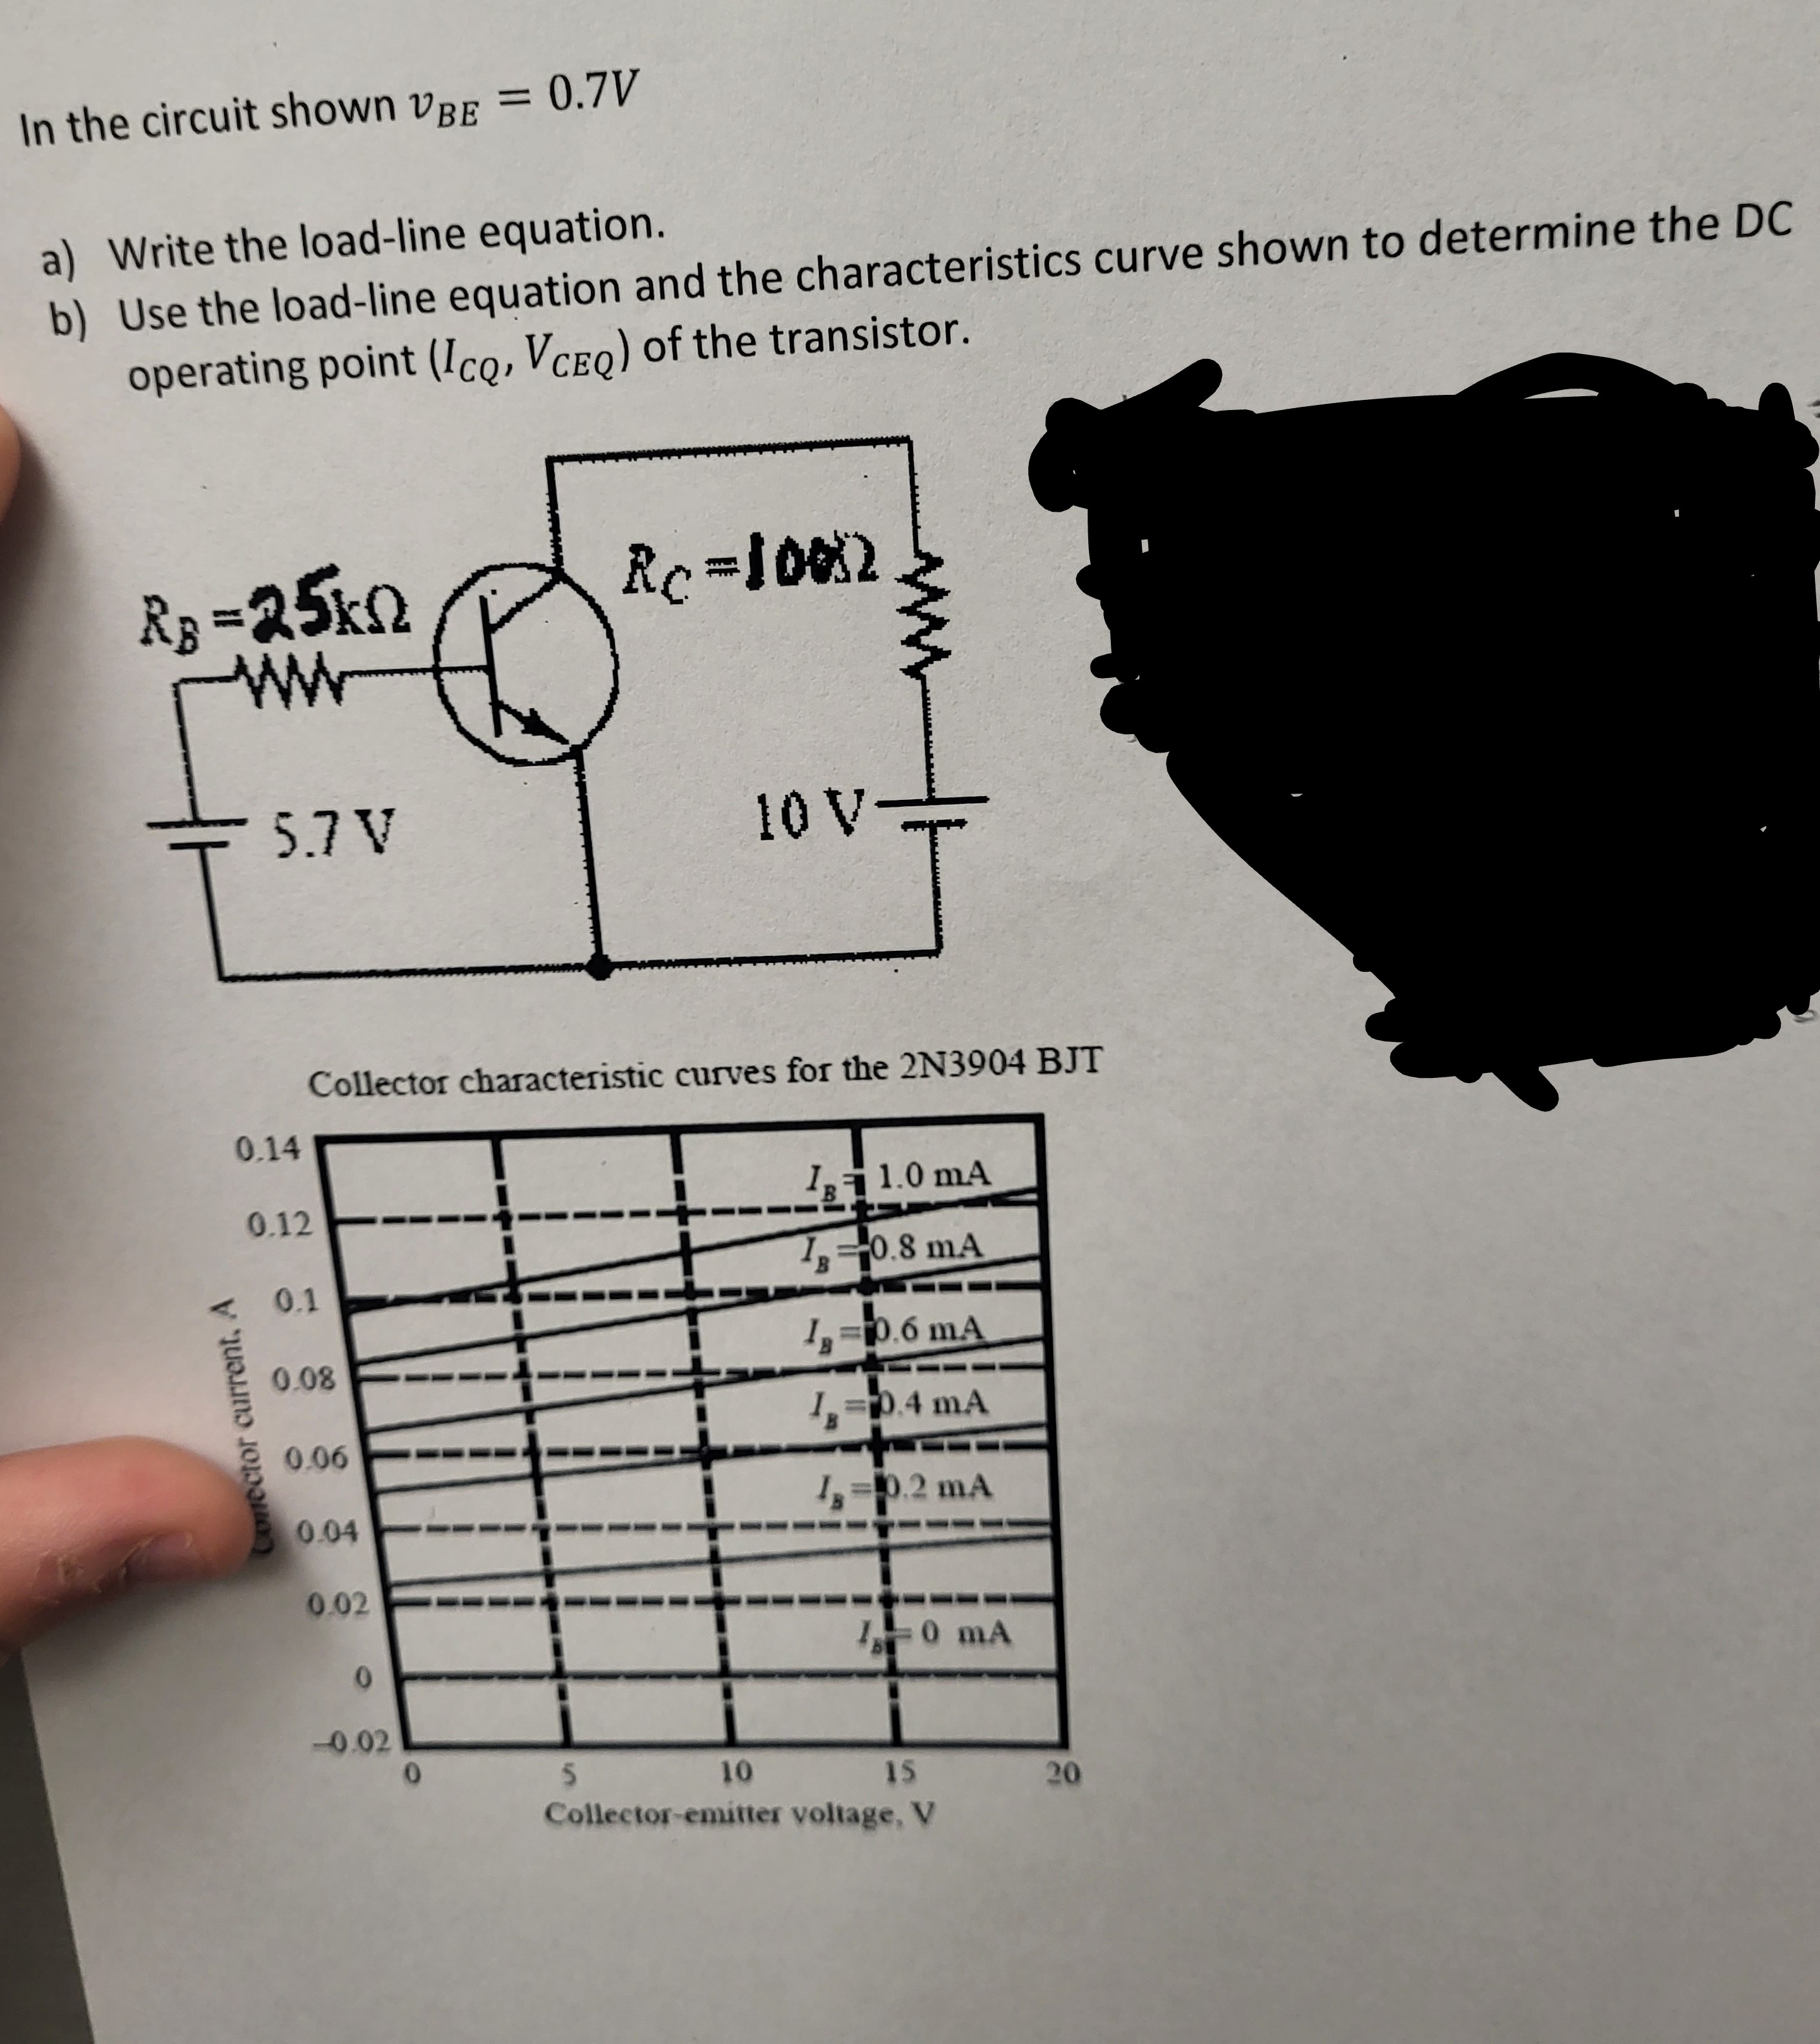 In the circuit shown v_BE = 0.7V
a) Write the load-line equation.
b) Use the load-line equation and the characteristics curve shown to determine the DC
operating point (I_CQ, V_CEQ) of the transistor.
R_C =100Ω
R_B =25kΩ
5.7 V
10 V
Collector characteristic curves for the 2N3904 BJT
0.14
I_B = 1.0 mA
0.12
I_B = 0.8 mA
0.1
I_B = 0.6 mA
0.08
I_B = 0.4 mA
0.06
I_B = 0.2 mA
0.04
0.02
I_B = 0 mA
0
−0.02
Collector current, A
0 5 10 15 20
Collector-emitter voltage, V